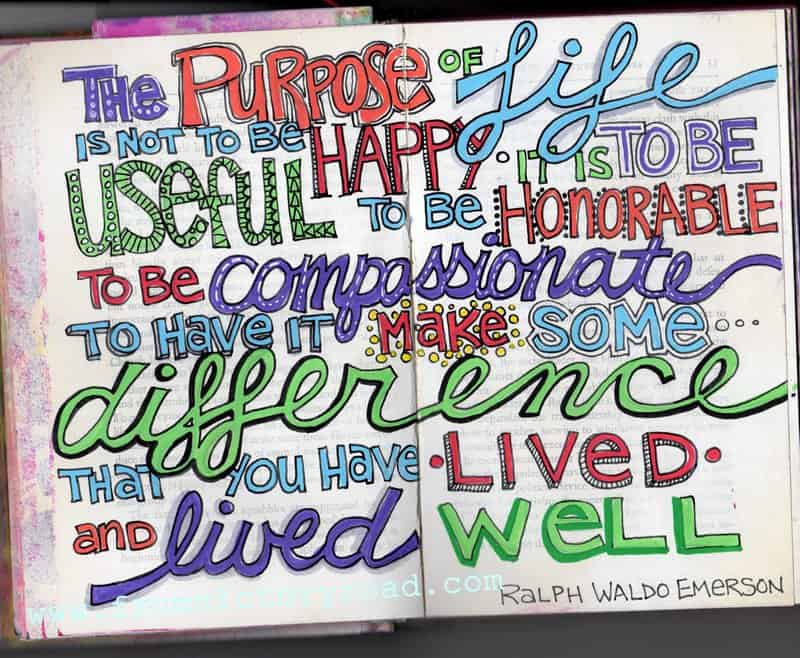 THe PURPOSe OF life
IS NOT TO Be HAPPY. IT IS TO BE
USeFUL TO Be HONORABLE
TO Be compassionate
TO HAVe IT MAKe SOMe...
difference
THAT YOU HAVe LIVeD
and lived WeLL
RALPH WALDO EMERSON